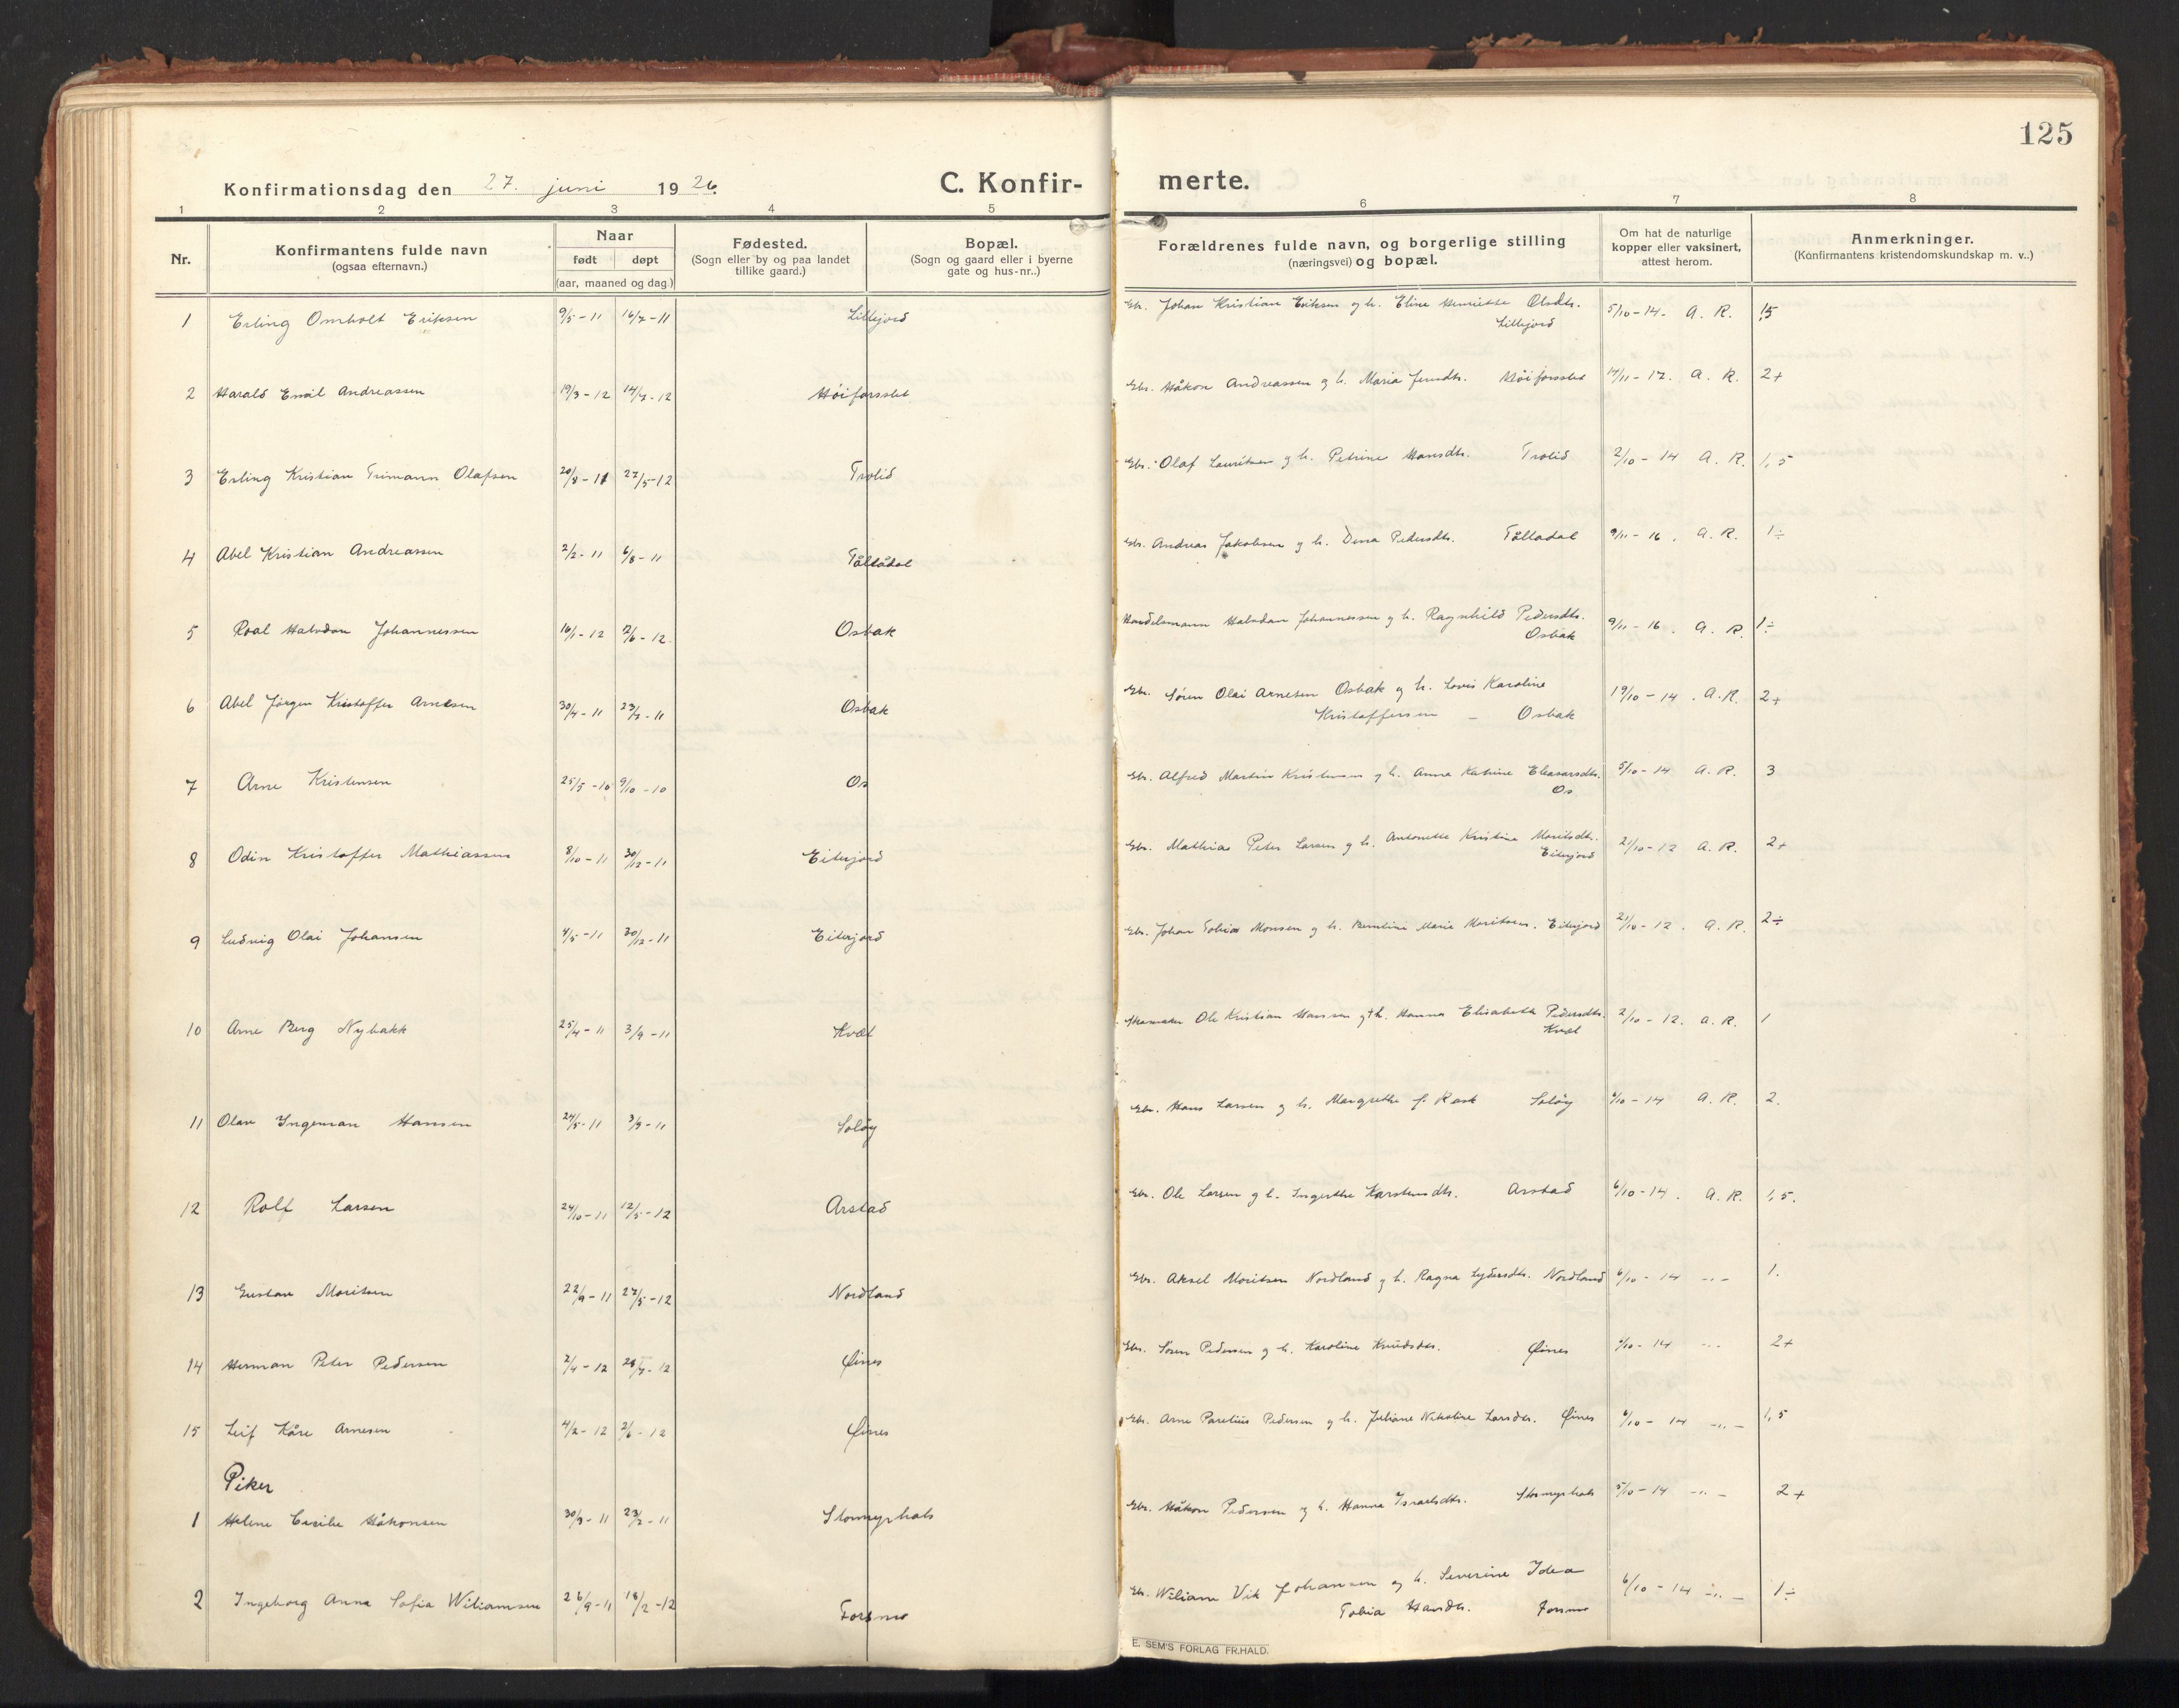 125
Konfirmationsdag den 27. juni 1926. C. Konfirmerte.
1 2 3 4 5 6 7 8
Nr. Konfirmantens fulde navn (ogsaa efternavn.) Naar født døpt (aar, maaned og dag.) Fødested. (Sogn eller by og paa landet tillike gaard.) Bopæl. (Sogn og gaard eller i byerne gate og hus-nr..) Forældrenes fulde navn, og borgerlige stilling (næringsvei) og bopæl. Om hat de naturlige kopper eller vaksinert, attest herom. Anmerkninger. (Konfirmantens kristendomskundskap m. v..)
1 Erling Omholt Eriksen 9/5-11 16/7-11 Lillejord Gbr. Johan Kristian Eriksen og h. Eline Henriette Olsdtr. Lillejord 5/10-14. A. R. 1,5
2 Harald Emil Andreassen 19/3-12 14/7-12 Høiforsslet Gbr. Håkon Andreassen og h. Maria Jensdtr. Høiforsslet 14/11-17. A. R. 2+
3 Erling Kristian Trimann Olafsen 20/8-11 27/5-12 Trolid Gbr. Olaf Lauritsen og h. Petrine Hansdtr. Trolid 2/10-14 A. R. 1,5
4 Abel Kristian Andreassen 2/2-11 6/8-11 Tålladal Gbr. Andreas Jakobsen og h. Dina Pedersdtr. Tålladal 9/11-16. A. R. 1÷
5 Roal Halvdan Johannessen 16/1-12 2/6-12. Osbak Handelsmann Halvdan Johannessen og h. Ragnhild Pedersdtr. Osbak 9/11-16. A. R. 1÷
6 Abel Jörgen Kristoffer Arnesen 30/4-11 23/7-11 Osbak Gbr. Sören Olai Arnesen Osbak og h. Lovis Karoline Kristoffersen - Osbak 19/10-14. A. R. 2+
7 Arne Kristensen 25/5-10 9/10-10 Os Gbr. Alfred Martin Kristensen og h. Anna Katrine Eleasarsdtr. Os 5/10-14 A. R. 3
8 Odin Kristoffer Mathiassen 8/10-11 30/12-11 Eiterjord Gbr. Mathias Peter Larsen og h. Antonette Kristine Moritsdtr. Eiterjord 21/10-12 A. R. 2+
9 Ludvig Olai Johansen 4/5-11 30/12-11 Eiterjord Gbr. Johan Tobias Monsen og h. Berntine Marie Moritsen. Eiterjord 21/10-12. A. R. 2÷
10 Arne Berg Nybakk 25/4-11 3/9-11 Kvæl Skomaker Ole Kristian Hansen og h. Hanna Elisabeth Pedersdtr. Kvæl 2/10-12. A. R. 1
11 Olav Ingeman Hansen 24/5-11 3/9-11 Soløy Gbr. Hans Larsen og h. Margrethe f. Rask Soløy 6/10-14 A. R. 2.
12 Rolf Larsen 24/10-11 12/5-12 Arstad Gbr. Ole Larsen og h. Ingerthe Karstensdtr. Arstad 6/10-14. A. R. 1,5.
13 Gustav Moritsen 22/9-11 27/5-12 Nordland Gbr. Aksel Moritsen Nordland og h. Ragna Lydersdtr. Nordland 6/10-14 -"- 1.
14 Herman Peter Pedersen 2/4-12 28/7-12 Øines Gbr. Sören Pedersen og h. Karoline Knudsdtr. Øines 6/10-14 -"- 2+
15 Leif Kåre Arnesen 4/2-12 2/6-12 Øines Gbr. Arne Parelius Pedersen og h. Juliane Nikoline Larsdtr. Øines 6/10-14 -"- 1,5
Piker
1 Helene Cecilie Håkonsen 30/3-11 23/7-11 Stormyrhals Gbr. Håkon Pedersen og h. Hanna Israelsdtr. Stormyrhals 5/10-14 -"- 2+
2 Ingeborg Anna Sofia Wiliamsen 26/9-11 18/2-12 Forsmo Gbr. Wiliam Vik Johansen og h. Severine Idea Tobia Hansdtr. Forsmo 6/10-14 -"- 1÷
E. SEM'S FORLAG FR.HALD.